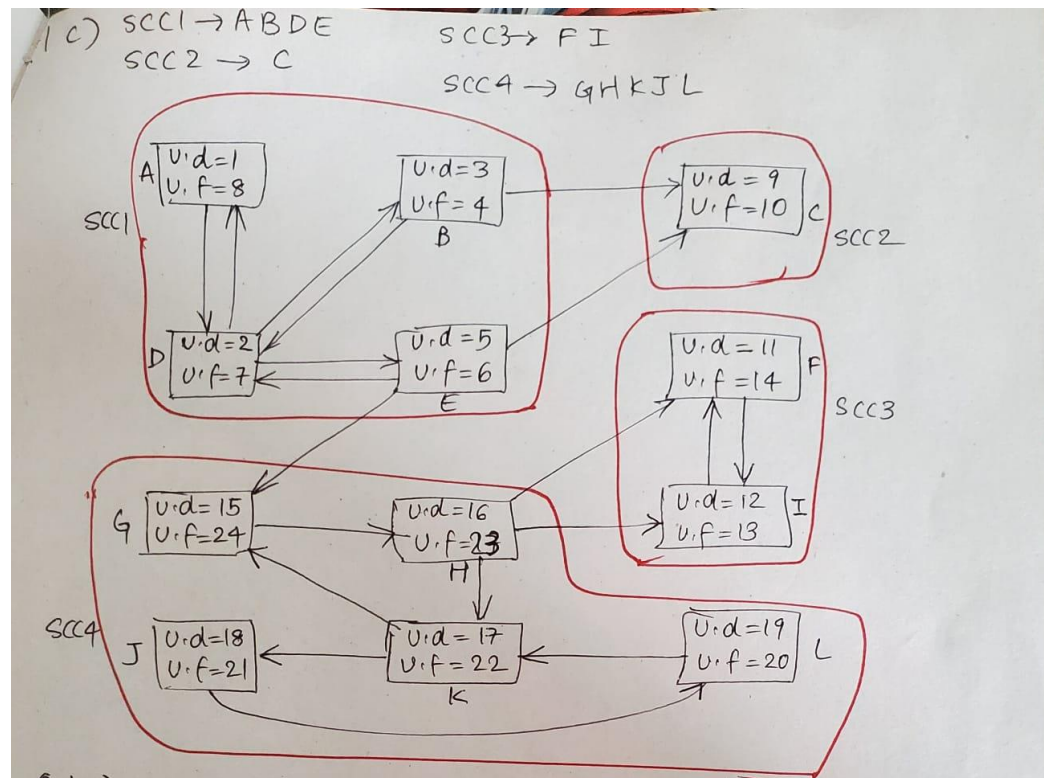 1 c) SCC1 → ABDE
SCC2 → C
SCC3 → F I
SCC4 → GHKJL
A
U.d=1
U.f=8
U.d=3
U.f=4
B
U.d=9
U.f=10
C
SCC1
SCC2
D
U.d=2
U.f=7
U.d=5
U.f=6
E
U.d=11
U.f=14
F
SCC3
G
U.d=15
U.f=24
U.d=16
U.f=23
H
U.d=12
U.f=13
I
SCC4
J
U.d=18
U.f=21
U.d=17
U.f=22
K
U.d=19
U.f=20
L